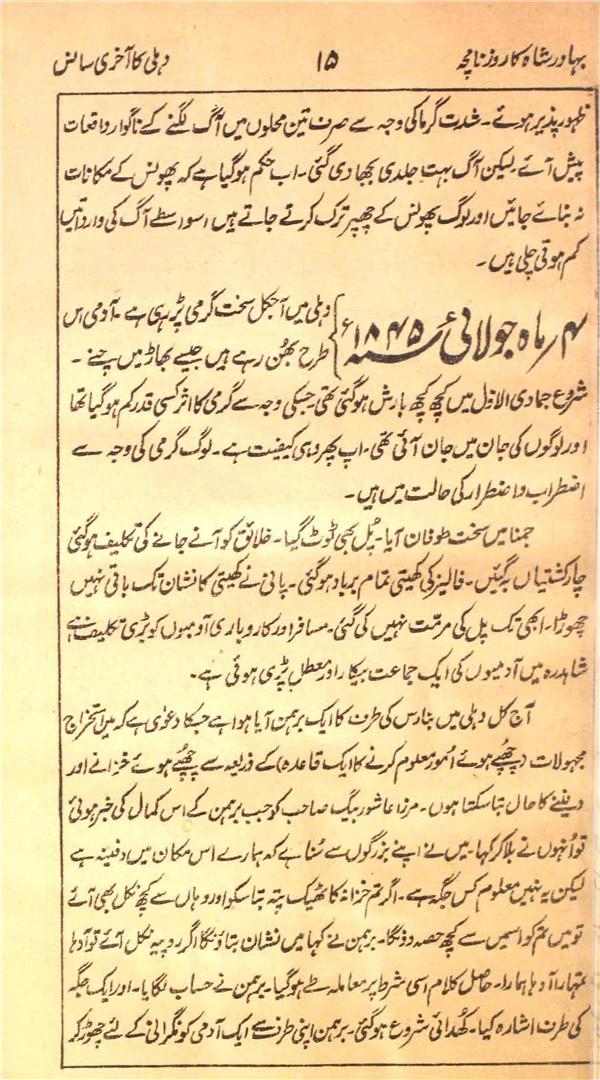 بہادر شاہ کا روزنامچہ ۱۵ دہلی کا آخری سانس
ظہور پذیر ہوئے۔ شدت گرما کی وجہ سے صرف تین محلوں میں آگ لگنے کے ناگوار واقعات
پیش آئے لیکن آگ بہت جلدی بجھا دی گئی۔ اب حکم ہوگیا ہے کہ پھونس کے مکانات
نہ بنائے جائیں اور لوگ پھونس کے چھپر ترک کرتے جاتے ہیں اسواسطے آگ کی وارداتیں
کم ہوتی چلی ہیں۔
۴؍ ماہ جولائی ۱۸۴۵ء
دہلی میں آجکل سخت گرمی پڑ رہی ہے۔ آدمی اس
طرح بھُن رہے ہیں جیسے بھاڑ میں چنے۔
شروع جمادی الاوّل میں کچھ کچھ بارش ہوگئی تھی جسکی وجہ سے گرمی کا اثر کسی قدر کم ہوگیا تھا
اور لوگوں کی جان میں جان آئی تھی۔ اب پھر وہی کیفیت ہے۔ لوگ گرمی کی وجہ سے
اضطراب واضطرار کی حالت میں ہیں۔
جمنا میں سخت طوفان آیا۔ پُل بھی ٹوٹ گیا۔ خلائق کو آنے جانے کی تکلیف ہوگئی
چار کشتیاں بہہ گئیں۔ فالیز کی کھیتی تمام برباد ہوگئی۔ پانی نے کھیتی کا نشان تک باقی نہیں
چھوڑا۔ ابھی تک پل کی مرمّت نہیں کی گئی۔ مسافر اور کاروباری آدمیوں کو بڑی تکلیف ہے
شاہدرہ میں آدمیوں کی ایک جماعت بیکار اور معطل پڑی ہوئی ہے۔
آج کل دہلی میں بنارس کی طرف کا ایک برہمن آیا ہوا ہے جسکا دعویٰ ہے کہ میں استخراج
مجہولات (چھپے ہوئے اُمور معلوم کرنے کا ایک قاعدہ) کے ذریعہ سے چھپے ہوئے خزانے اور
دفینے کا حال بتا سکتا ہوں۔ مرزا عاشور بیگ صاحب کو جب برہمن کے اس کمال کی خبر ہوئی
تو اُنہوں نے بلا کر کہا۔ میں نے اپنے بزرگوں سے سُنا ہے کہ ہمارے اس مکان میں دفینہ ہے
لیکن یہ نہیں معلوم کس جگہ ہے۔ اگر تم خزانہ کا ٹھیک پتہ بتا سکو اور وہاں سے کچھ نکل بھی آئے
تو میں تم کو اسمیں سے کچھ حصہ دونگا۔ برہمن نے کہا میں نشان بتاؤنگا اگر روپیہ نکل آئے تو آدہا
تمہارا آدہا ہمارا۔ حاصل کلام اسی شرط پر معاملہ طے ہوگیا۔ برہمن نے حساب لگایا۔ اور ایک جگہ
کی طرف اشارہ کیا۔ کھُدائی شروع ہوگئی۔ برہمن اپنی طرف سے ایک آدمی کو نگرانی کے لئے چھوڑ کر